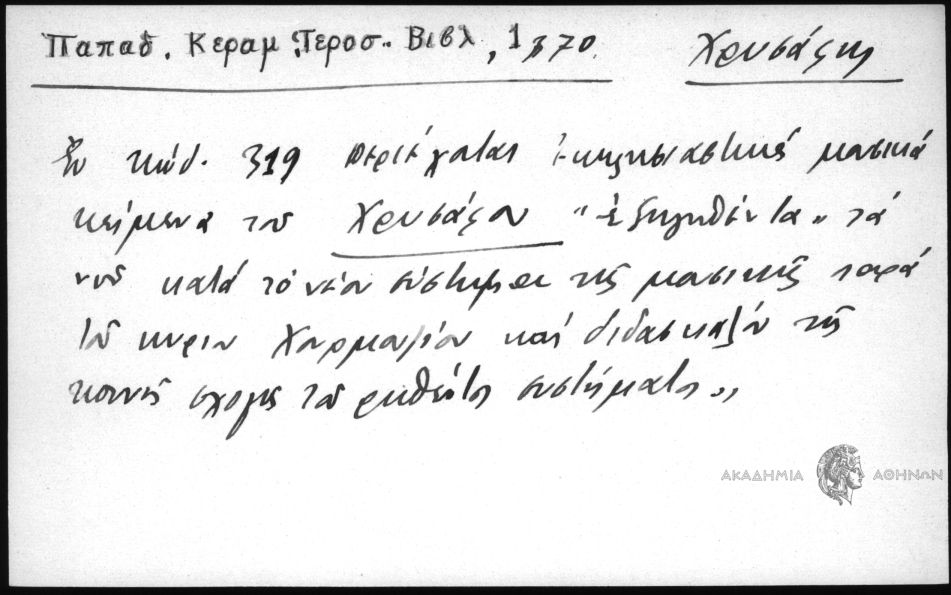 Παπαδ. Κεραμ. Ιεροσ.. Βιβλ, 1, 370. Χρυσάφης
Ἐν κώδ. 319 περιέχονται ἐκκλησιαστικά μουσικά
κείμενα του Χρυσάφου "ἐξηγηθέντα" τά
νῦν κατά τό νέον σύστημα τῆς μουσικῆς παρά
τοῦ κυρίου Χουρμουζίου καί διδασκάλου τῆς
κοινῆς σχολῆς τοῦ ρηθέντος συστήματος"
ΑΚΑΔΗΜΙΑ ΑΘΗΝΩΝ